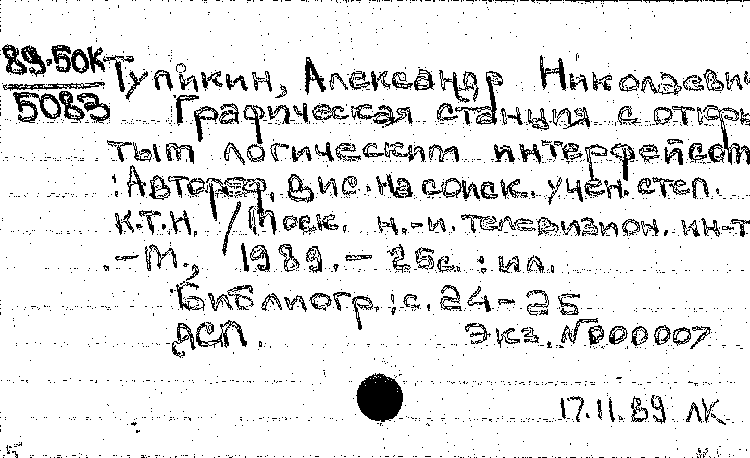 89-50К
5083
Тупикин, Александр Николаевич
Графическая станция с откры-
тым логическим интерфейсом
: Автореф. дис. на соиск. учен. степ.
к.т.н. / Моск. н.-и. телевизион. ин-т
.-М., 1989.- 25с. : ил.
Библиогр.: с. 24-25
ДСП. Экз. №000007
17.11.89 ЛК